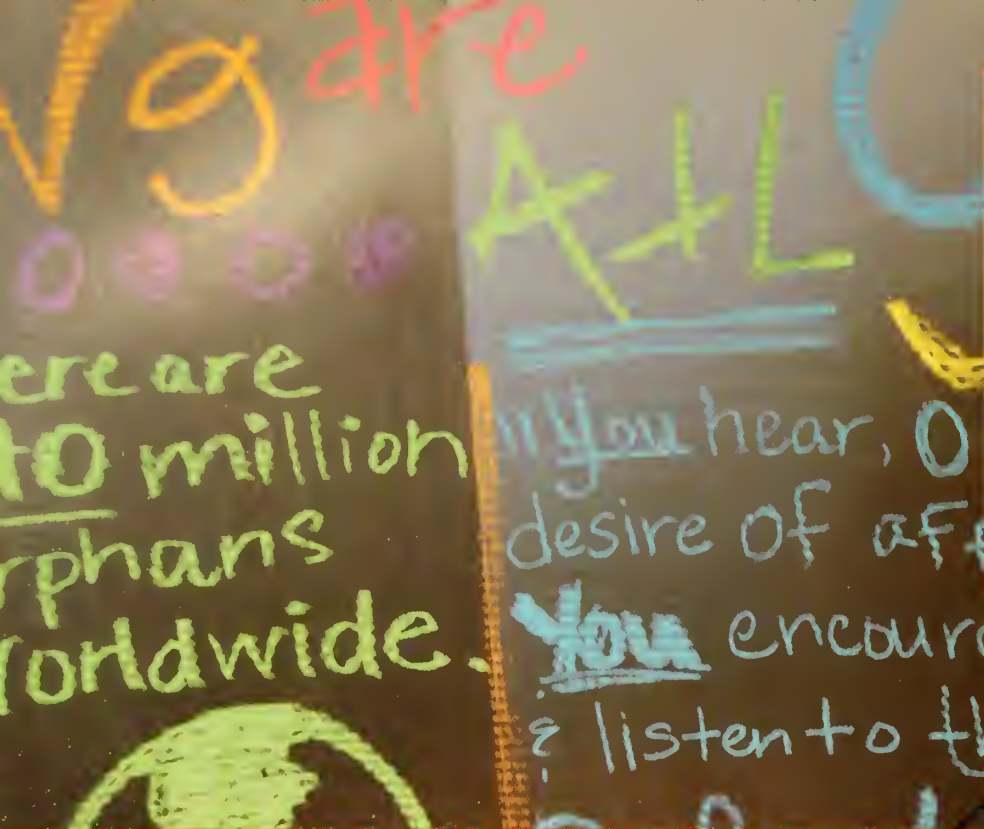 are
AtL
ere are
40 million
rphans
worldwide.
You hear, O
desire of
You encour
& listen to th